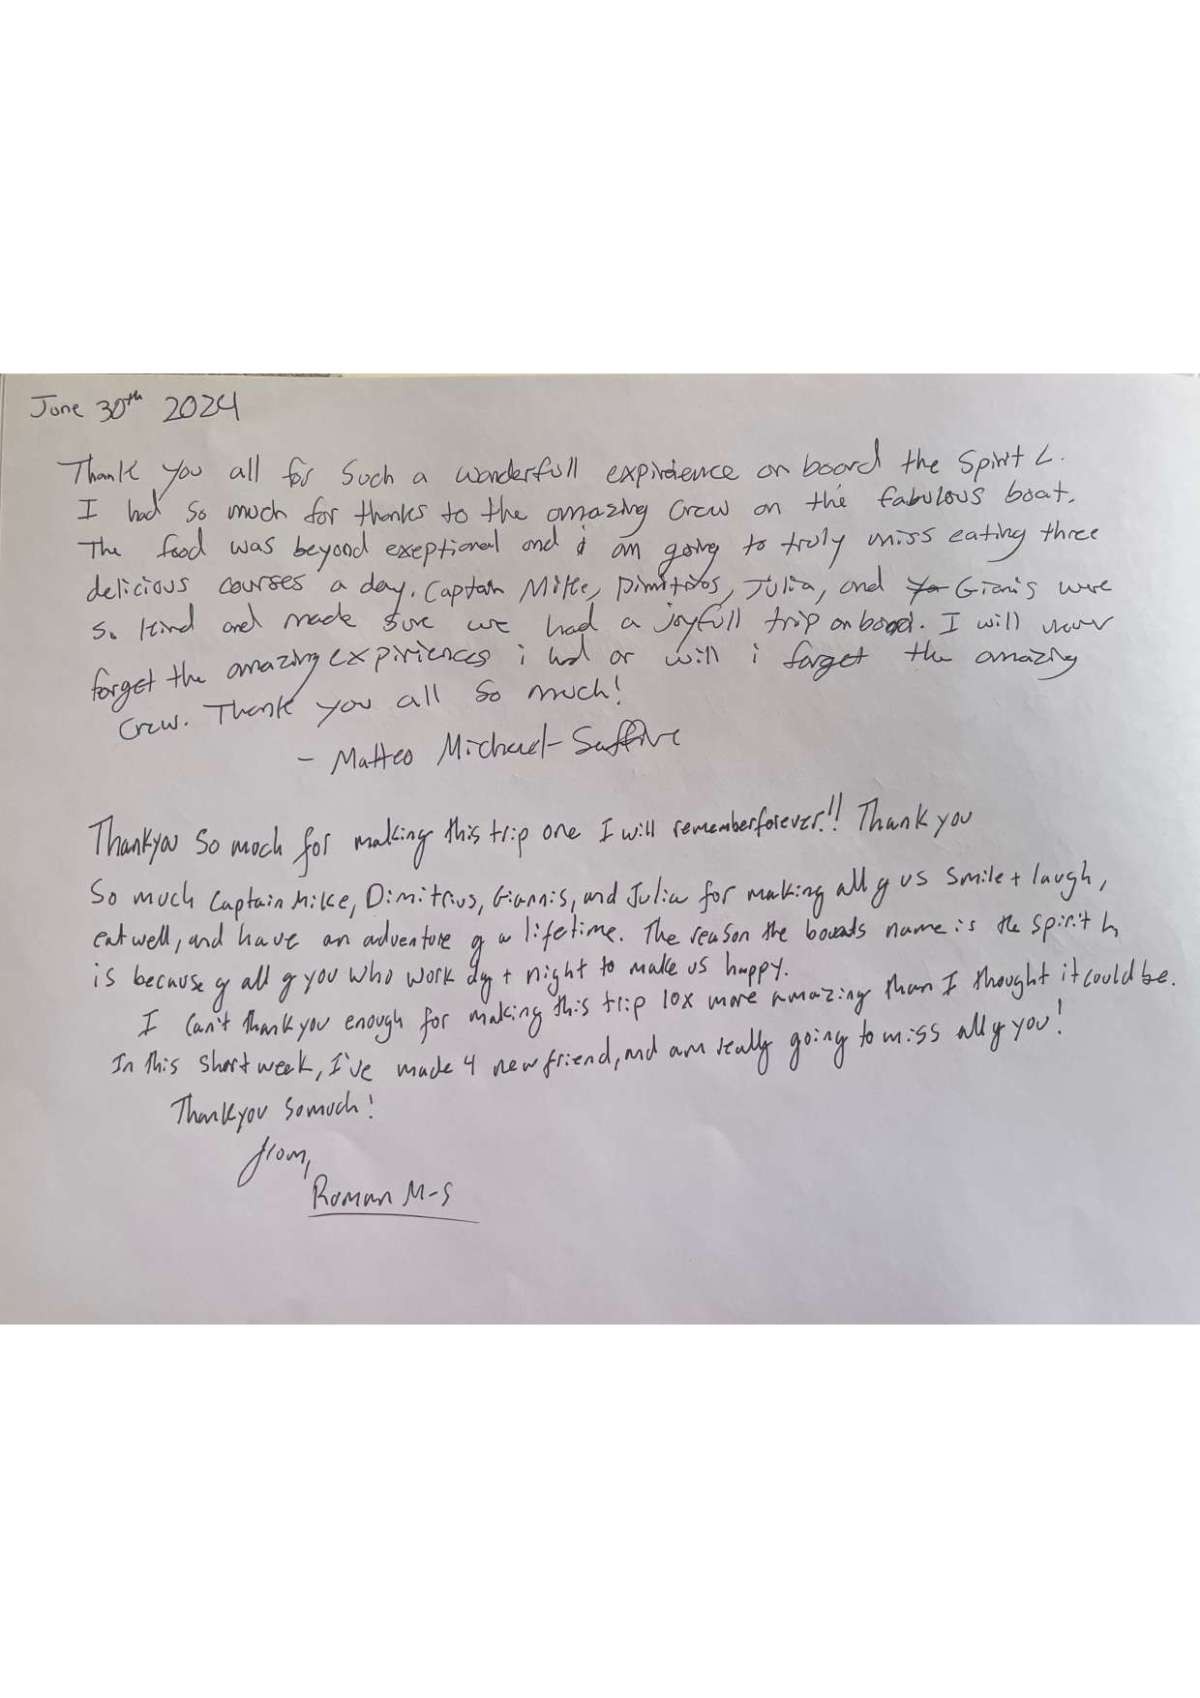 June 30th 2024
Thank you all for such a wonderfull expirdience on board the Spirit L.
I had so much for thanks to the amazing crew on the fabulous boat.
The food was beyond exeptional and i am going to truly miss eating three
delicious courses a day. Captain Mike, Dimitrios, Julia, and Gianis were
so kind and made sure we had a joyfull trip on board. I will never
forget the amazing expiriences i had or will i forget the amazing
crew. Thank you all so much!
- Matteo Michael-
Thankyou so much for making this trip one I will remember forever!! Thank you
so much Captain Mike, Dimitrius, Giannis, and Julia for making all of us smile + laugh,
eat well, and have an adventure of a lifetime. The reason the boats name is the spirit L
is because of all of you who work day + night to make us happy.
I can't thank you enough for making this trip 10x more amazing than I thought it could be.
In this short week, I've made 4 new friend, and am really going to miss all of you!
Thankyou so much!
from,
Roman M-S